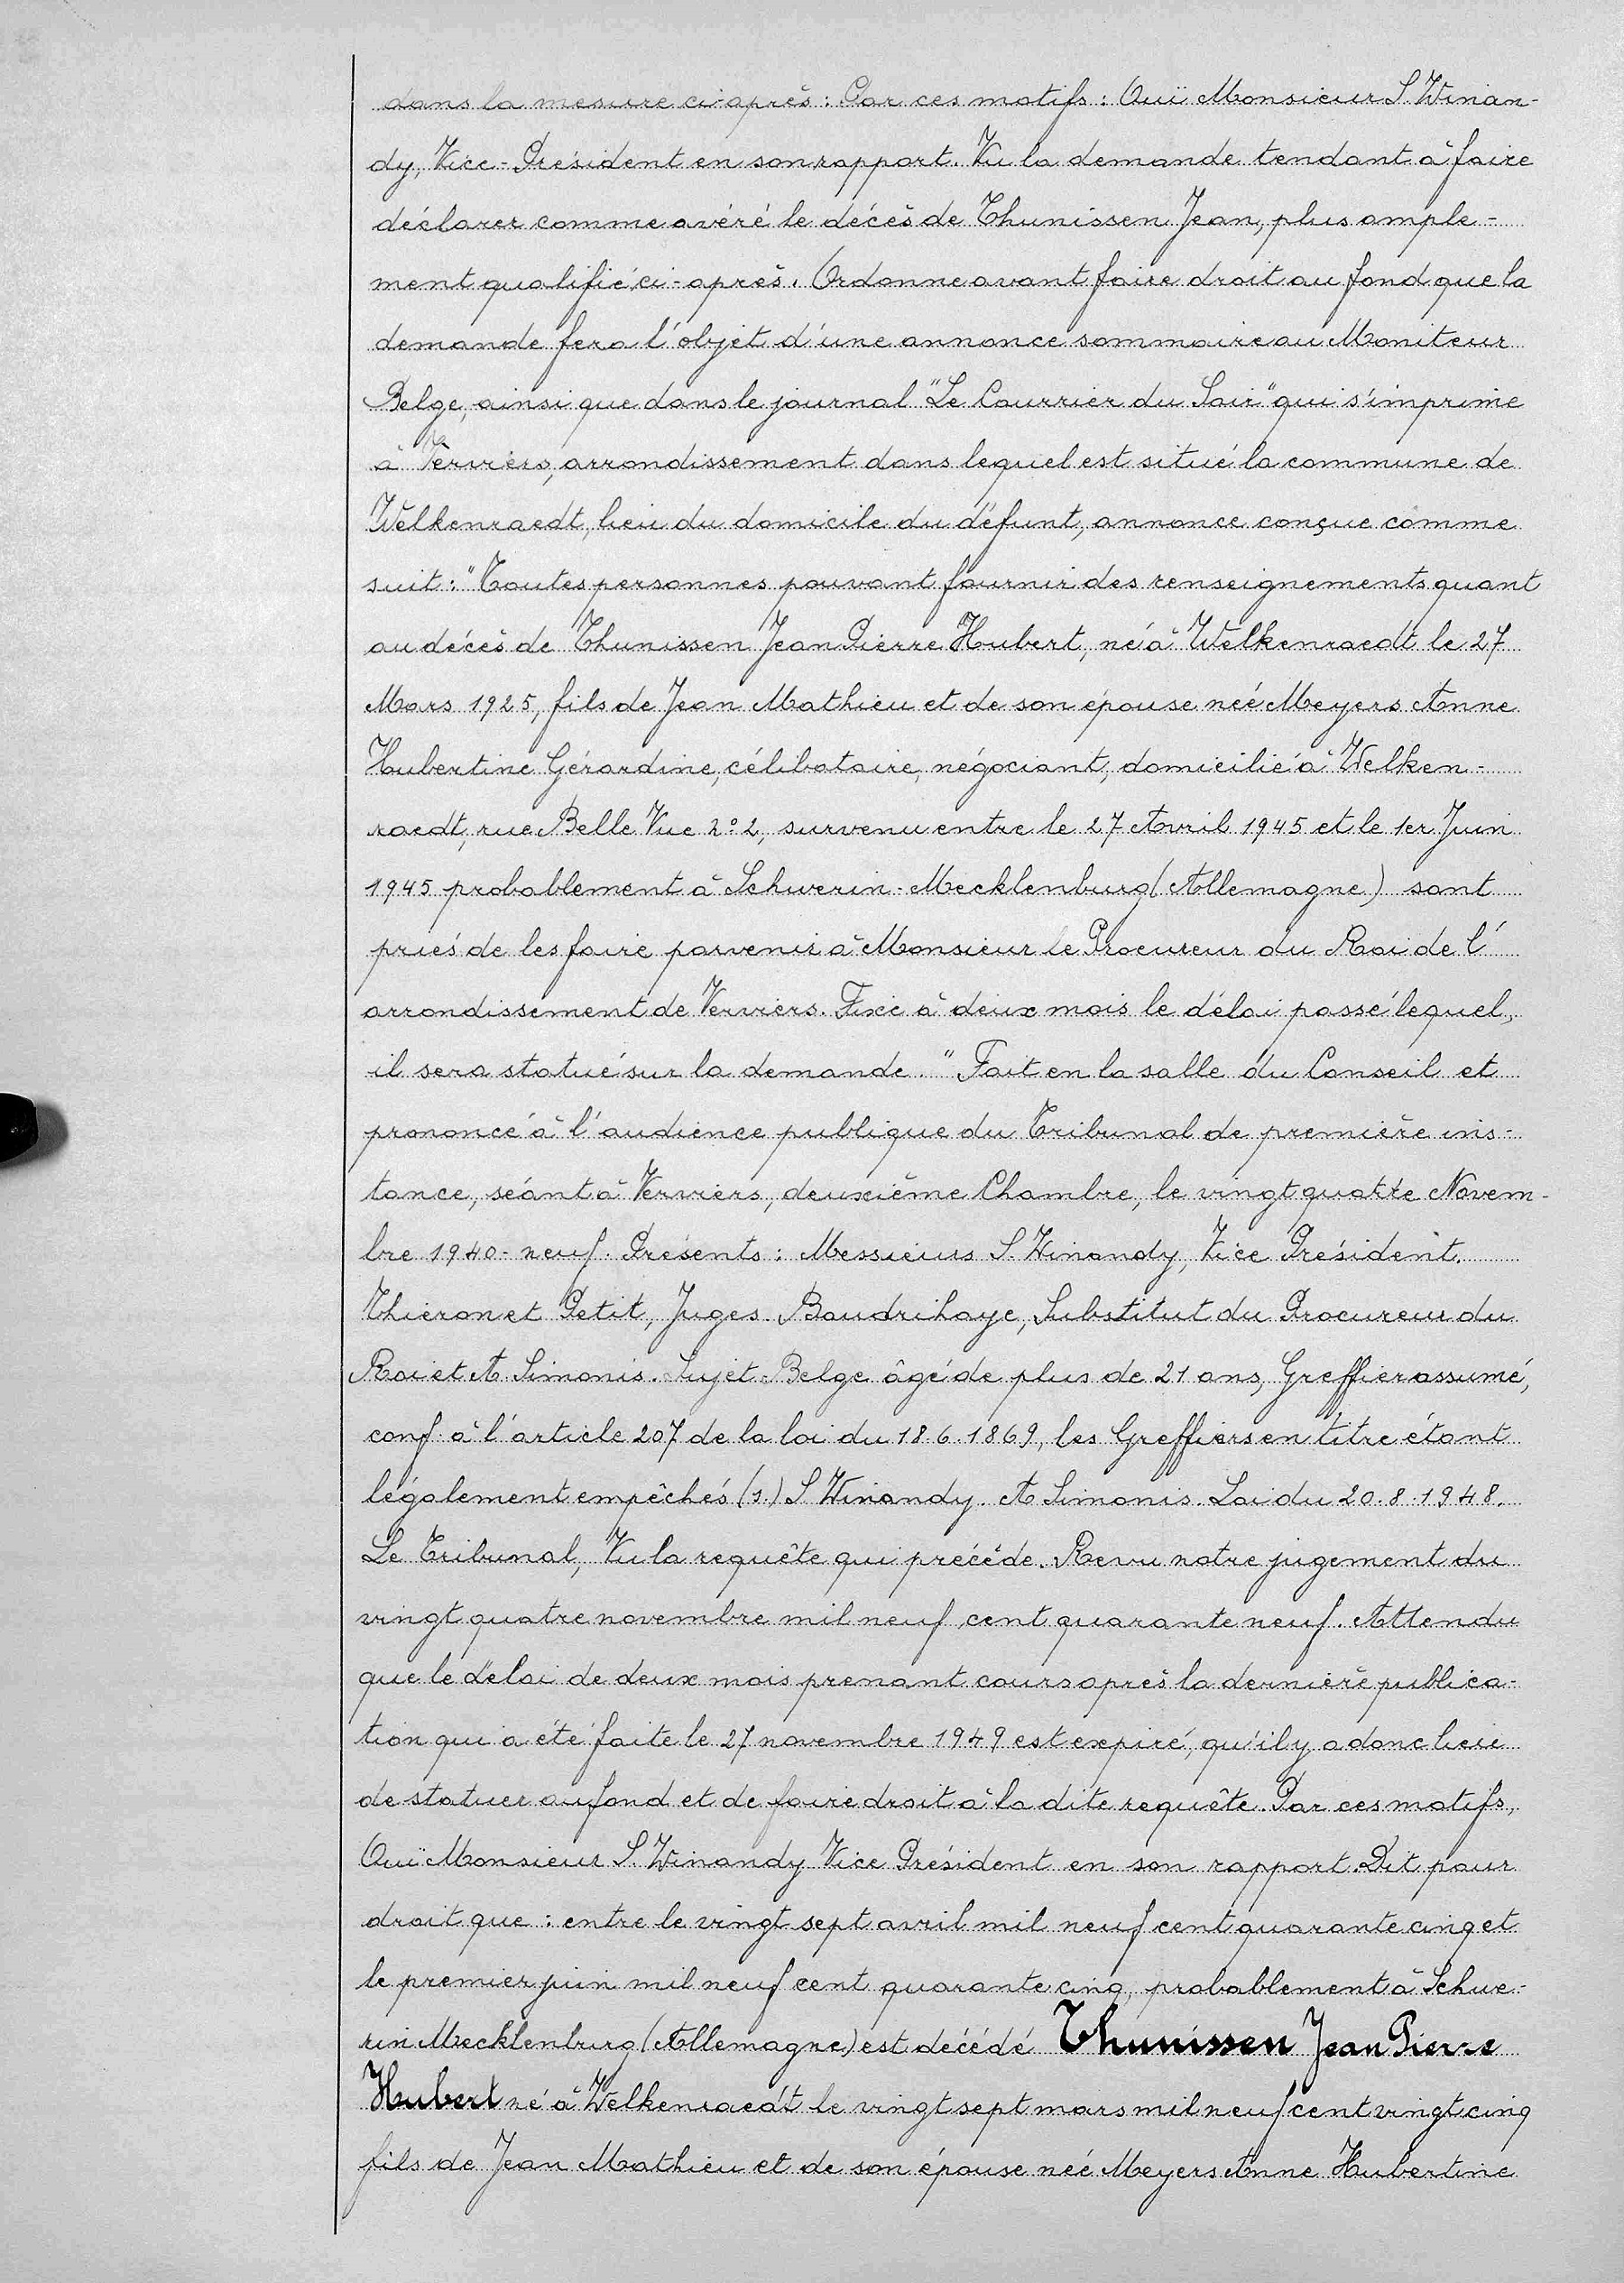 dans la mesure ci-après : Par ces motifs : Ouï Monsieur S. Winan-
dy, Vice-Président en son rapport. Vu la demande tendant à faire
déclarer comme avéré le décès de Thunissen Jean, plus ample-
ment qualifié ci-après. Ordonne avant faire droit au fond que la
demande fera l'objet d'une annonce sommaire au Moniteur
Belge, ainsi que dans le journal "Le Courrier du Soir" qui s'imprime
à Verviers, arrondissement dans lequel est situé la commune de
Welkenraedt, lieu du domicile du défunt, annonce conçue comme
suit : "Toutes personnes pouvant fournir des renseignements quant
au décès de Thunissen Jean Pierre Hubert, né à Welkenraedt le 27
Mars 1925, fils de Jean Mathieu et de son épouse née Meyers Anne
Hubertine Gérardine, célibataire, négociant, domicilié à Welken-
raedt, rue Belle Vue n° 2, survenu entre le 27 Avril 1945 et le 1er Juin
1945 probablement à Schwerin-Mecklenburg (Allemagne) sont
priés de les faire parvenir à Monsieur le Procureur du Roi de l'
arrondissement de Verviers. Fixe à deux mois le délai passé lequel,
il sera statué sur la demande." Fait en la salle du Conseil et
prononcé à l'audience publique du Tribunal de première ins-
tance, séant à Verviers, deuxième Chambre, le vingt quatre Novem-
bre 1940-neuf. Présents : Messieurs S. Winandy, Vice Président.
Thieron et Petit, Juges. Baudrihaye, Substitut du Procureur du
Roi et A. Simonis. Sujet Belge âgé de plus de 21 ans, Greffier assumé,
conf. à l'article 207 de la loi du 18.6.1869, les Greffiers en titre étant
légalement empêchés (s.) S Winandy. A Simonis. Loi du 20.8.1948.
Le Tribunal, Vu la requête qui précède. Revu notre jugement du
vingt quatre novembre mil neuf cent quarante neuf. Attendu
que le délai de deux mois prenant cours après la dernière publica-
tion qui a été faite le 27 novembre 1949 est expiré, qu'il y a donc lieu
de statuer au fond et de faire droit à la dite requête. Par ces motifs,
Ouï Monsieur S. Winandy Vice Président en son rapport. Dit pour
droit que : entre le vingt sept avril mil neuf cent quarante cinq et
le premier juin mil neuf cent quarante cinq, probablement à Schwe-
rin Mecklenburg (Allemagne) est décédé Thunissen Jean Pierre
Hubert né à Welkenraedt le vingt sept mars mil neuf cent vingt cinq
fils de Jean Mathieu et de son épouse née Meyers Anne Hubertine